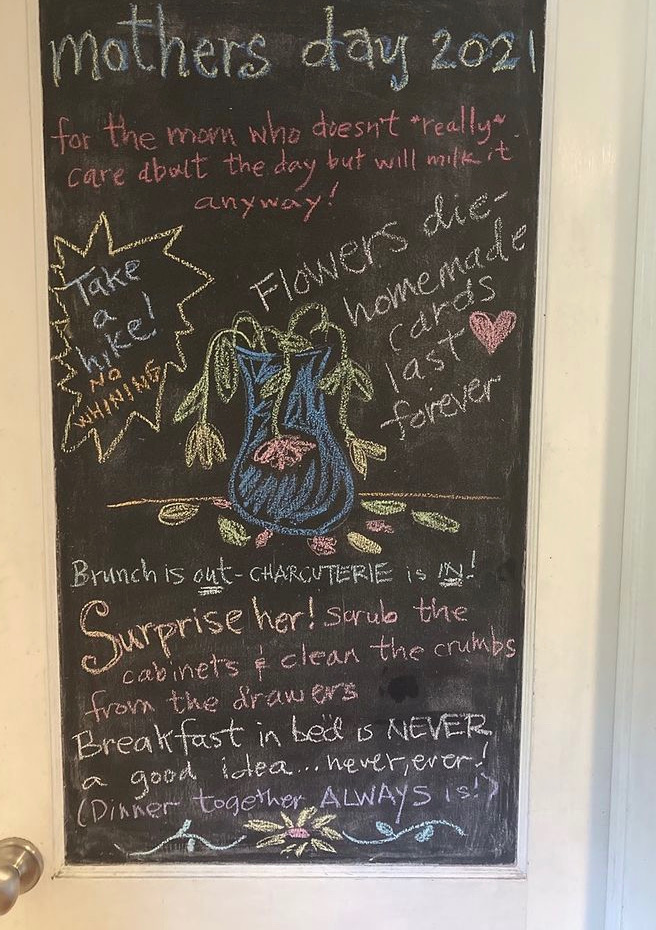 mothers day 2021
for the mom who doesn't *really*
care about the day but will milk it
anyway!
Take
a
hike!
NO
WHINING
Flowers die-
homemade
cards
last
forever
Brunch is out - CHARCUTERIE is IN!
Surprise her! Scrub the
cabinets & clean the crumbs
from the drawers
Breakfast in bed is NEVER
a good idea... never, ever!
(Dinner together ALWAYS is!)